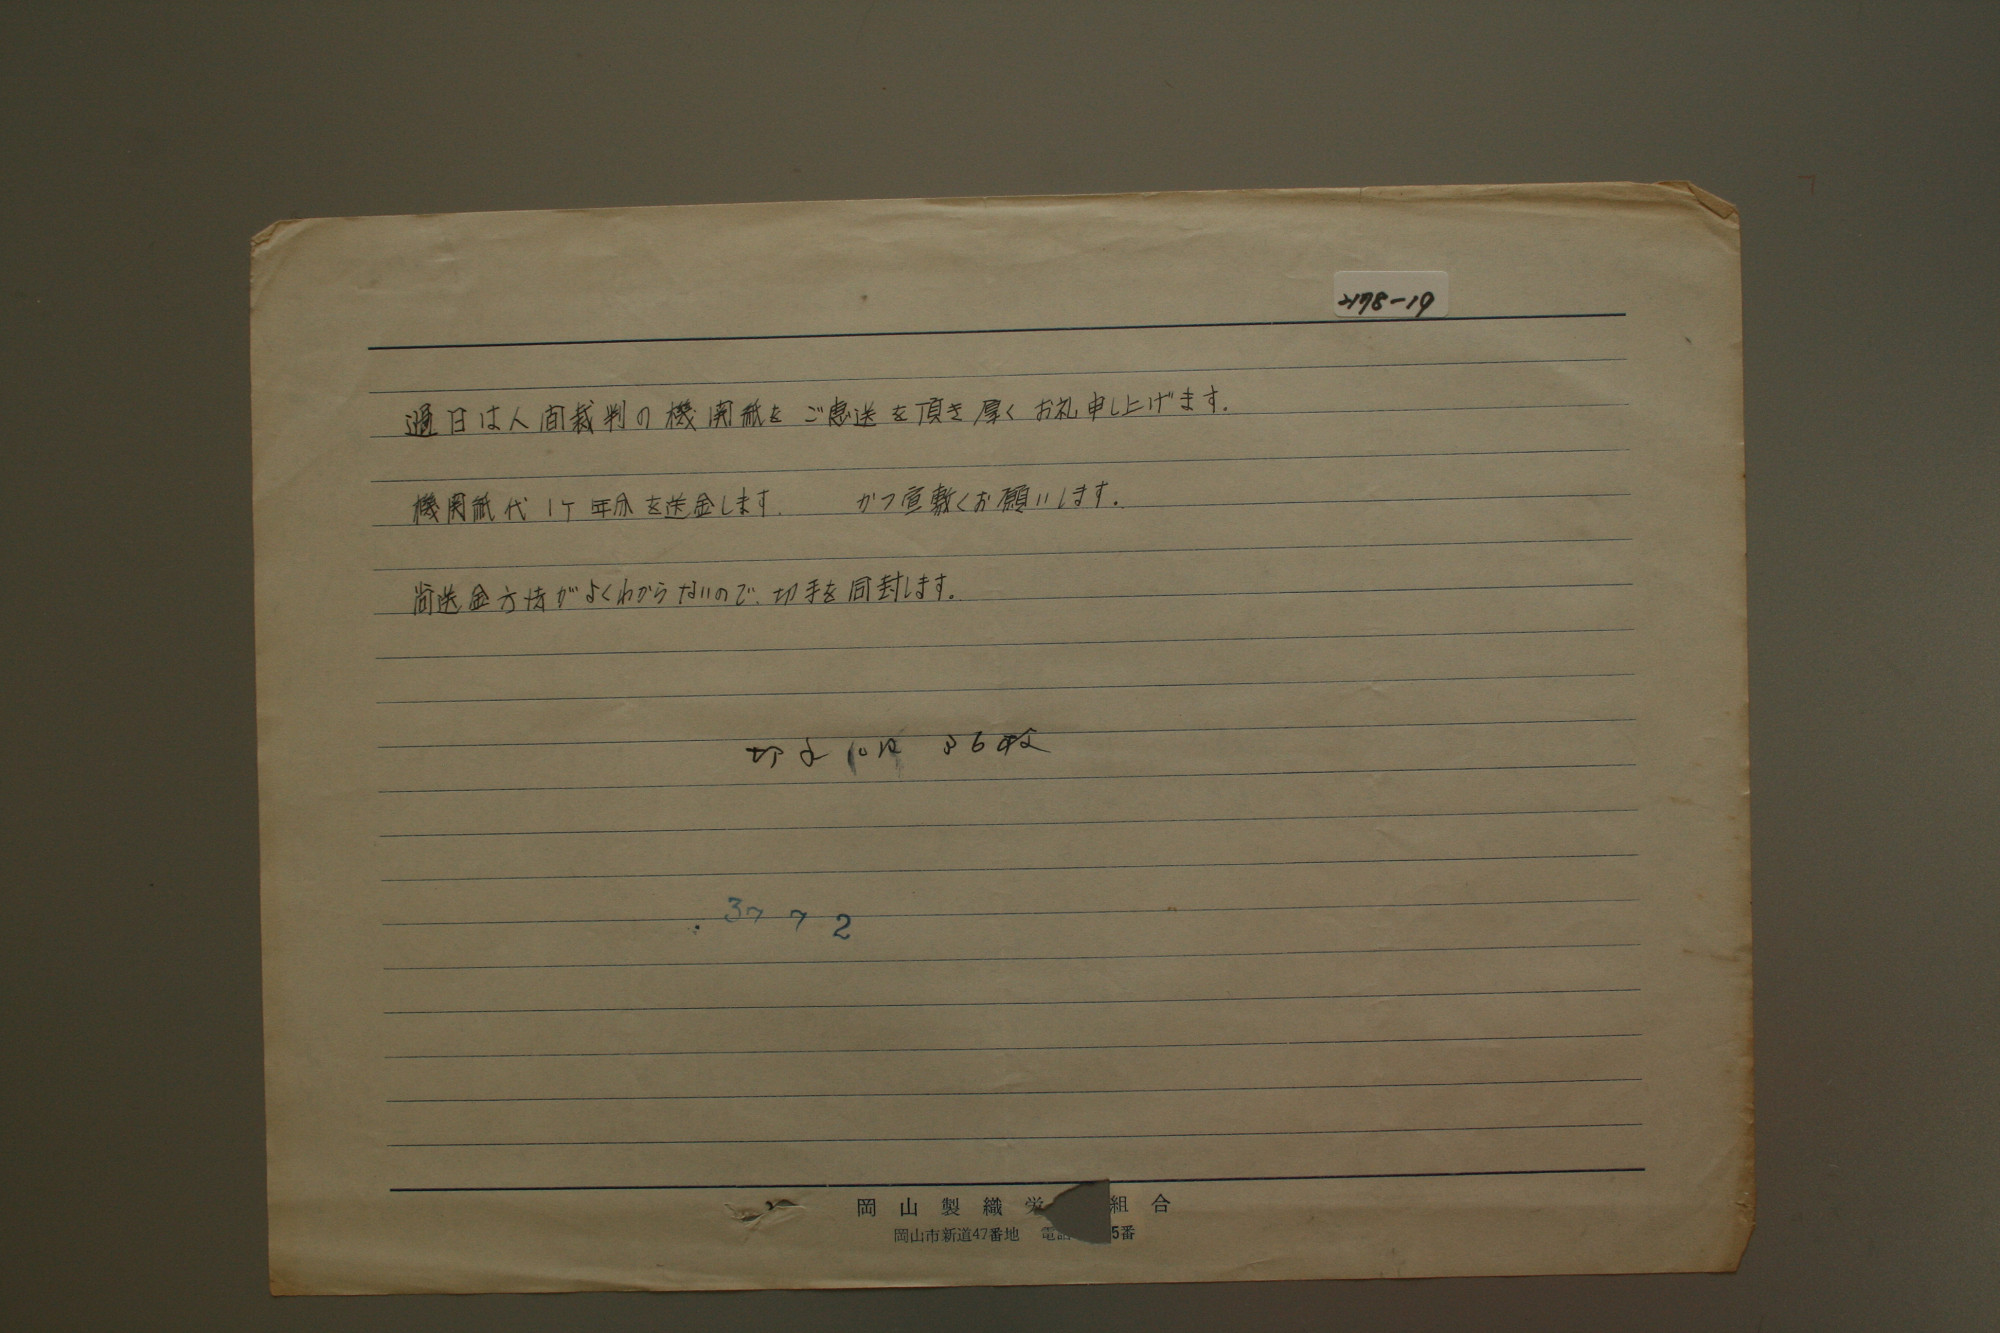 2178-19
過日は人間裁判の機関紙をご恵送を頂き厚くお礼申し上げます.
機関紙代1ケ年分を送金します. かつ宜敷くお願いします.
尚送金方法がよくわからないので、切手を同封します。
切手10円 36枚
37 7 2
岡山製織労 組合
岡山市新道47番地 電話 5番